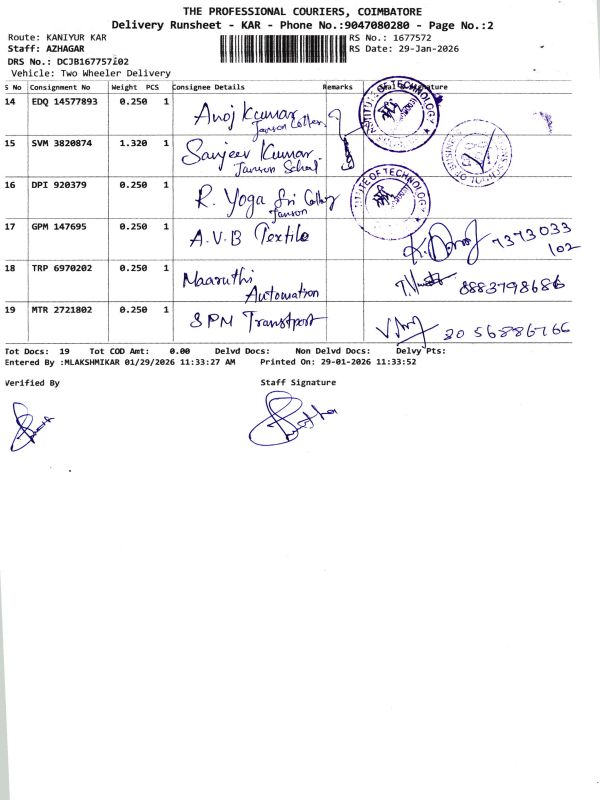 THE PROFESSIONAL COURIERS, COIMBATORE
Delivery Runsheet - KAR - Phone No.:9047080280 - Page No.:2
Route: KANIYUR KAR RS No.: 1677572
Staff: AZHAGAR RS Date: 29-Jan-2026
DRS No.: DCJB167757202
Vehicle: Two Wheeler Delivery
S No Consignment No Weight PCS Consignee Details Remarks Seal & Signature
14 EDQ 14577893 0.250 1 Anoj Kumar
15 SVM 3820874 1.320 1 Sanjeev Kumar
16 DPI 920379 0.250 1 R. Yoga Sri
17 GPM 147695 0.250 1 A.V.B Textile 7373033
102
18 TRP 6970202 0.250 1 Maaruthi
Automation 8883798686
19 MTR 2721802 0.250 1 SPM Transport
Tot Docs: 19 Tot COD Amt: 0.00 Delvd Docs: Non Delvd Docs: Delvy Pts:
Entered By :MLAKSHMIKAR 01/29/2026 11:33:27 AM Printed On: 29-01-2026 11:33:52
Verified By Staff Signature